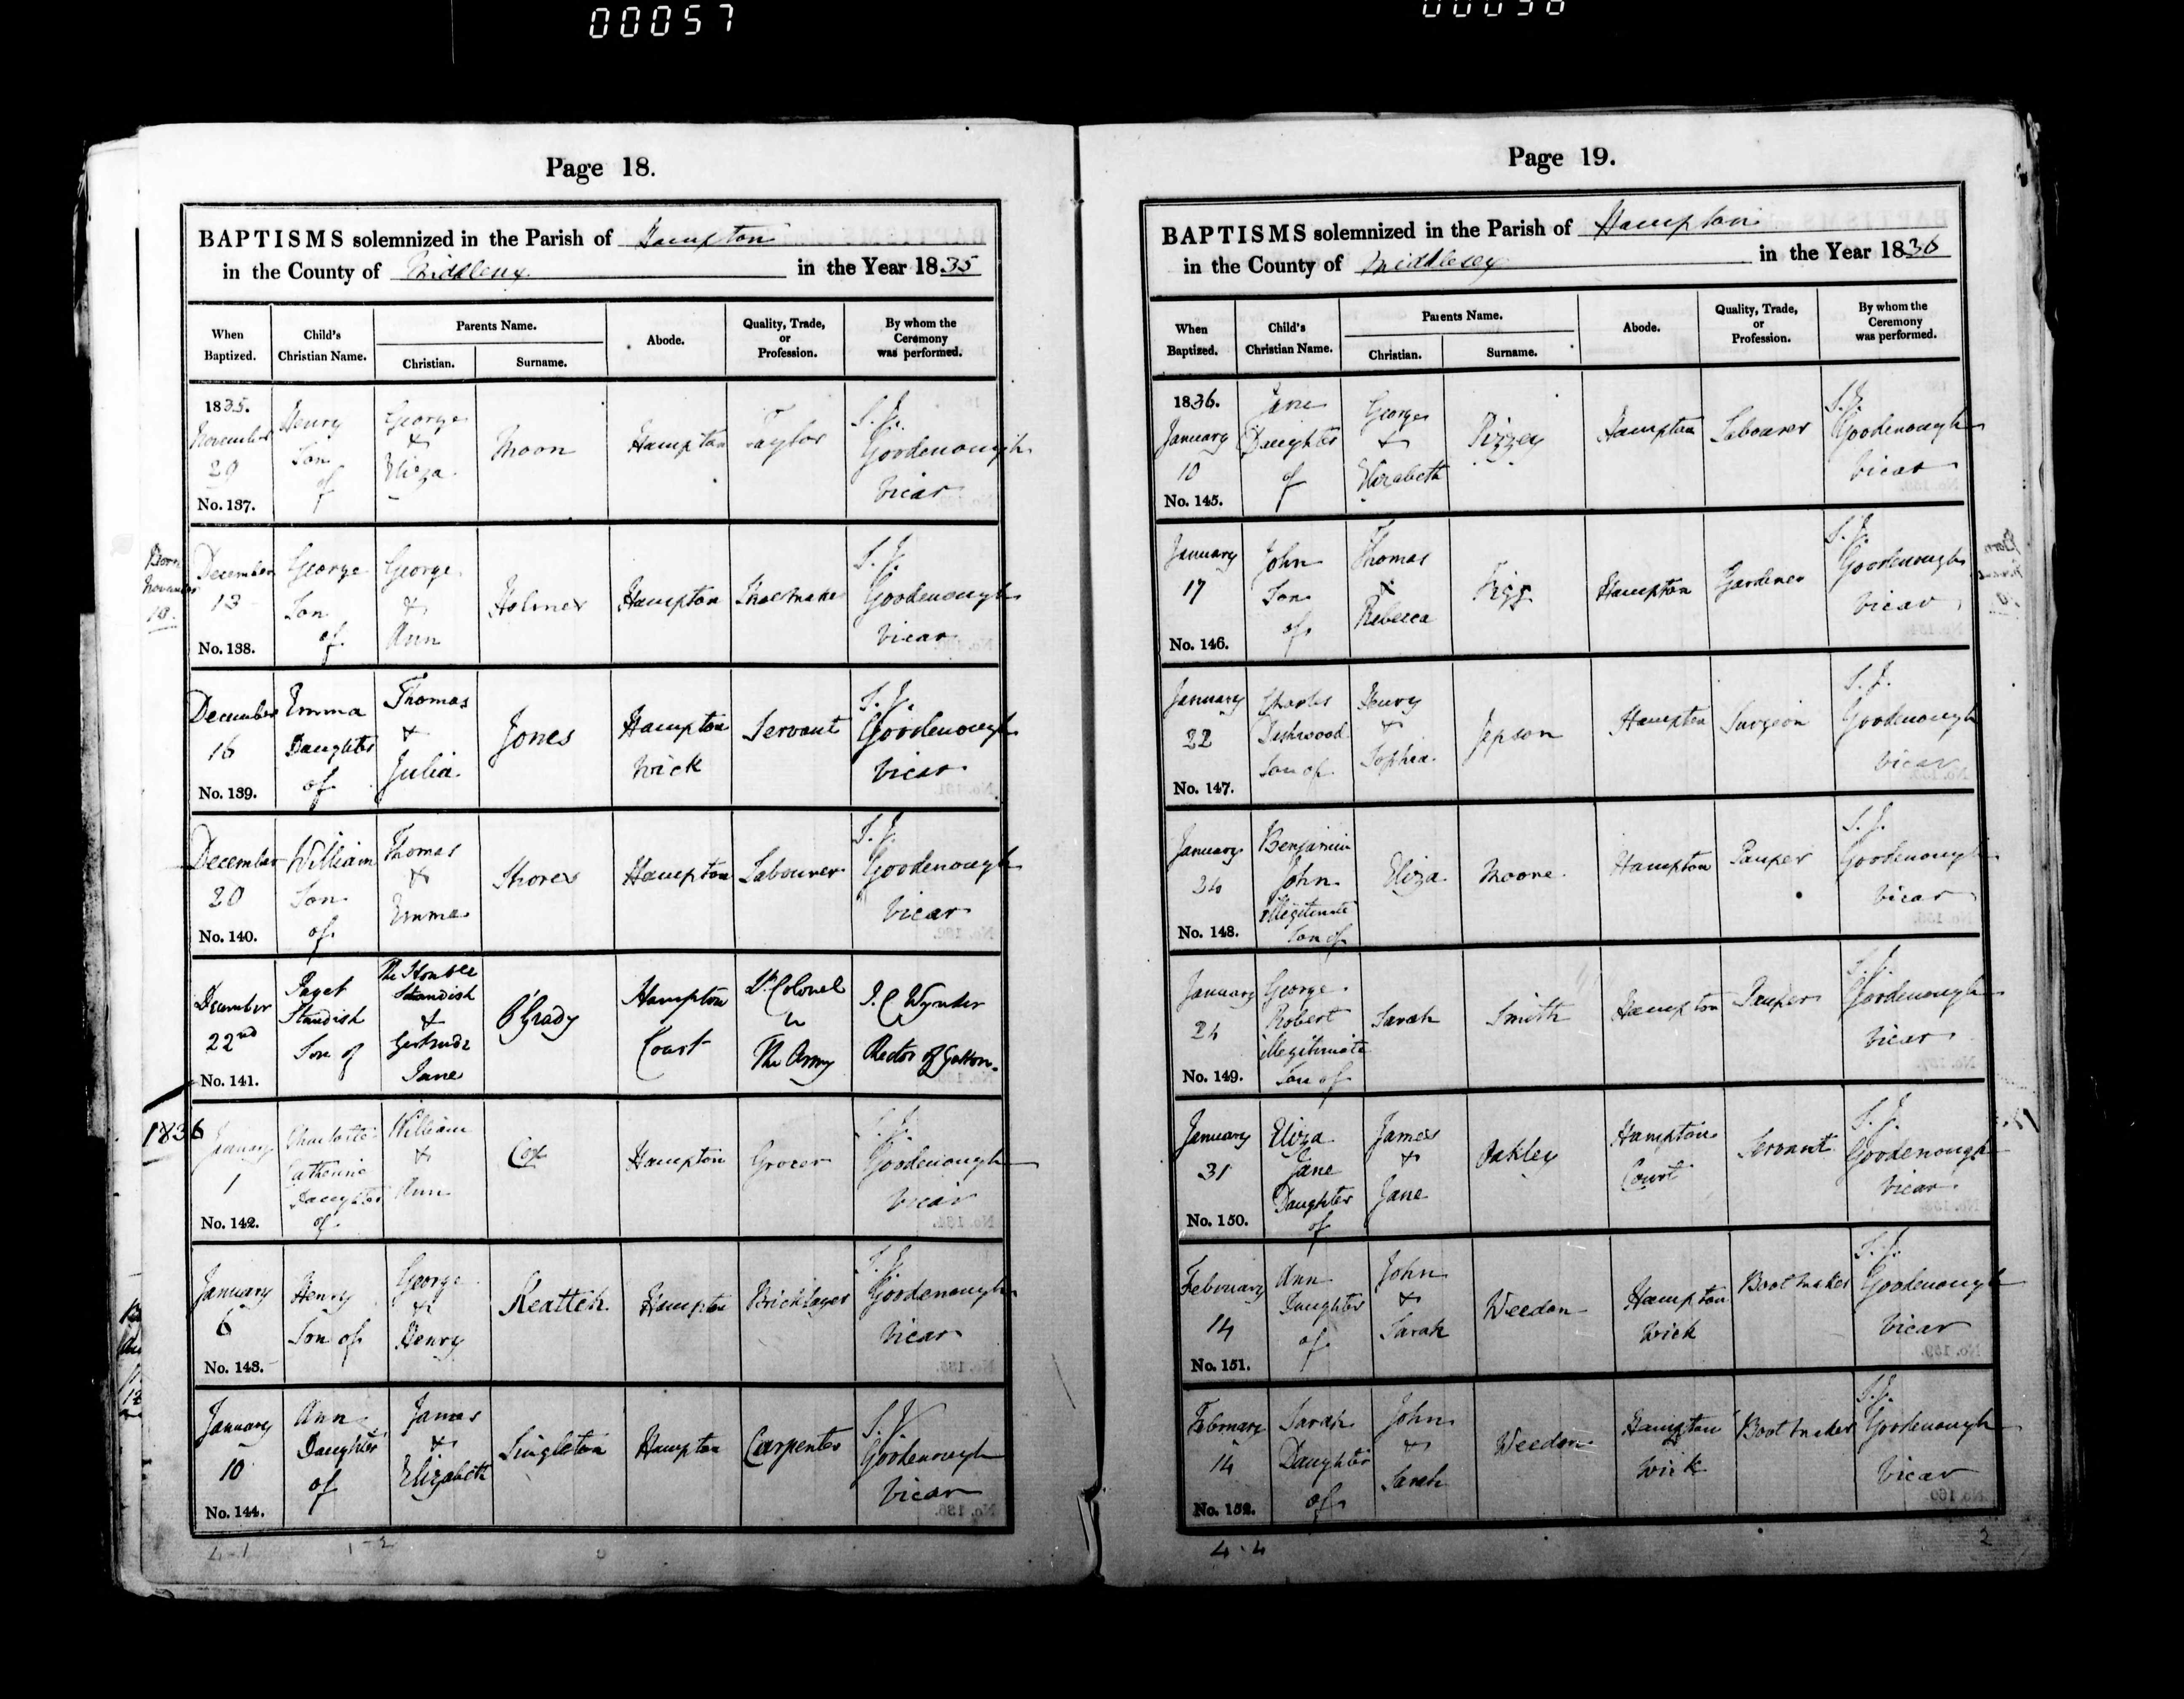 00057
Page 18.
BAPTISMS solemnized in the Parish of Hampton
in the County of Middlesex in the Year 1835
When Baptized. Child's Christian Name. Parents Name. Christian. Surname. Abode. Quality, Trade, or Profession. By whom the Ceremony was performed.
1835. November 29 No. 137. Henry Son of George & Eliza Moon Hampton Taylor S. J. Goodenough Vicar
Born November
December 13 No. 138. George Son of George & Ann Holmes Hampton Shoemaker S. J. Goodenough Vicar
December 16 No. 139. Emma Daughter of Thomas & Julia Jones Hampton Wick Servant S. J. Goodenough Vicar
December 20 No. 140. William Son of Thomas & Emma Shores Hampton Labourer S. J. Goodenough Vicar
December 22nd No. 141. Paget Standish Son of The Honble Standish & Gertrude Jane O'Grady Hampton Court Lt. Colonel in The Army J. C. Wynter Rector of Gatton
1836
January 1 No. 142. Charlotte Catherine Daughter of William & Ann Cox Hampton Grocer S. J. Goodenough Vicar
January 6 No. 143. Henry Son of George & Henry Hampton Bricklayer S. J. Goodenough Vicar
January 10 No. 144. Ann Daughter of James & Elizabeth Singleton Hampton Carpenter S. J. Goodenough Vicar
4-1 1-2
00058
Page 19.
BAPTISMS solemnized in the Parish of Hampton
in the County of Middlesex in the Year 1836
When Baptized. Child's Christian Name. Parents Name. Christian. Surname. Abode. Quality, Trade, or Profession. By whom the Ceremony was performed.
1836. January 10 No. 145. Jane Daughter of George & Elizabeth Pizzey Hampton Labourer S. J. Goodenough Vicar
January 17 No. 146. John Son of Thomas & Rebecca Figg Hampton Gardener S. J. Goodenough Vicar
January 22 No. 147. Charles Dashwood Son of Henry & Sophia Jepson Hampton Surgeon S. J. Goodenough Vicar
January 24 No. 148. Benjamin John illegitimate Son of Eliza Moore Hampton Pauper S. J. Goodenough Vicar
January 24 No. 149. George Robert illegitimate Son of Sarah Smith Hampton Pauper S. J. Goodenough Vicar
January 31 No. 150. Eliza Jane Daughter of James & Jane Oakley Hampton Court Servant S. J. Goodenough Vicar
February 14 No. 151. Ann Daughter of John & Sarah Weedon Hampton Wick Bootmaker S. J. Goodenough Vicar
February 14 No. 152. Sarah Daughter of John & Sarah Weedon Hampton Wick Bootmaker S. J. Goodenough Vicar
4-4 2